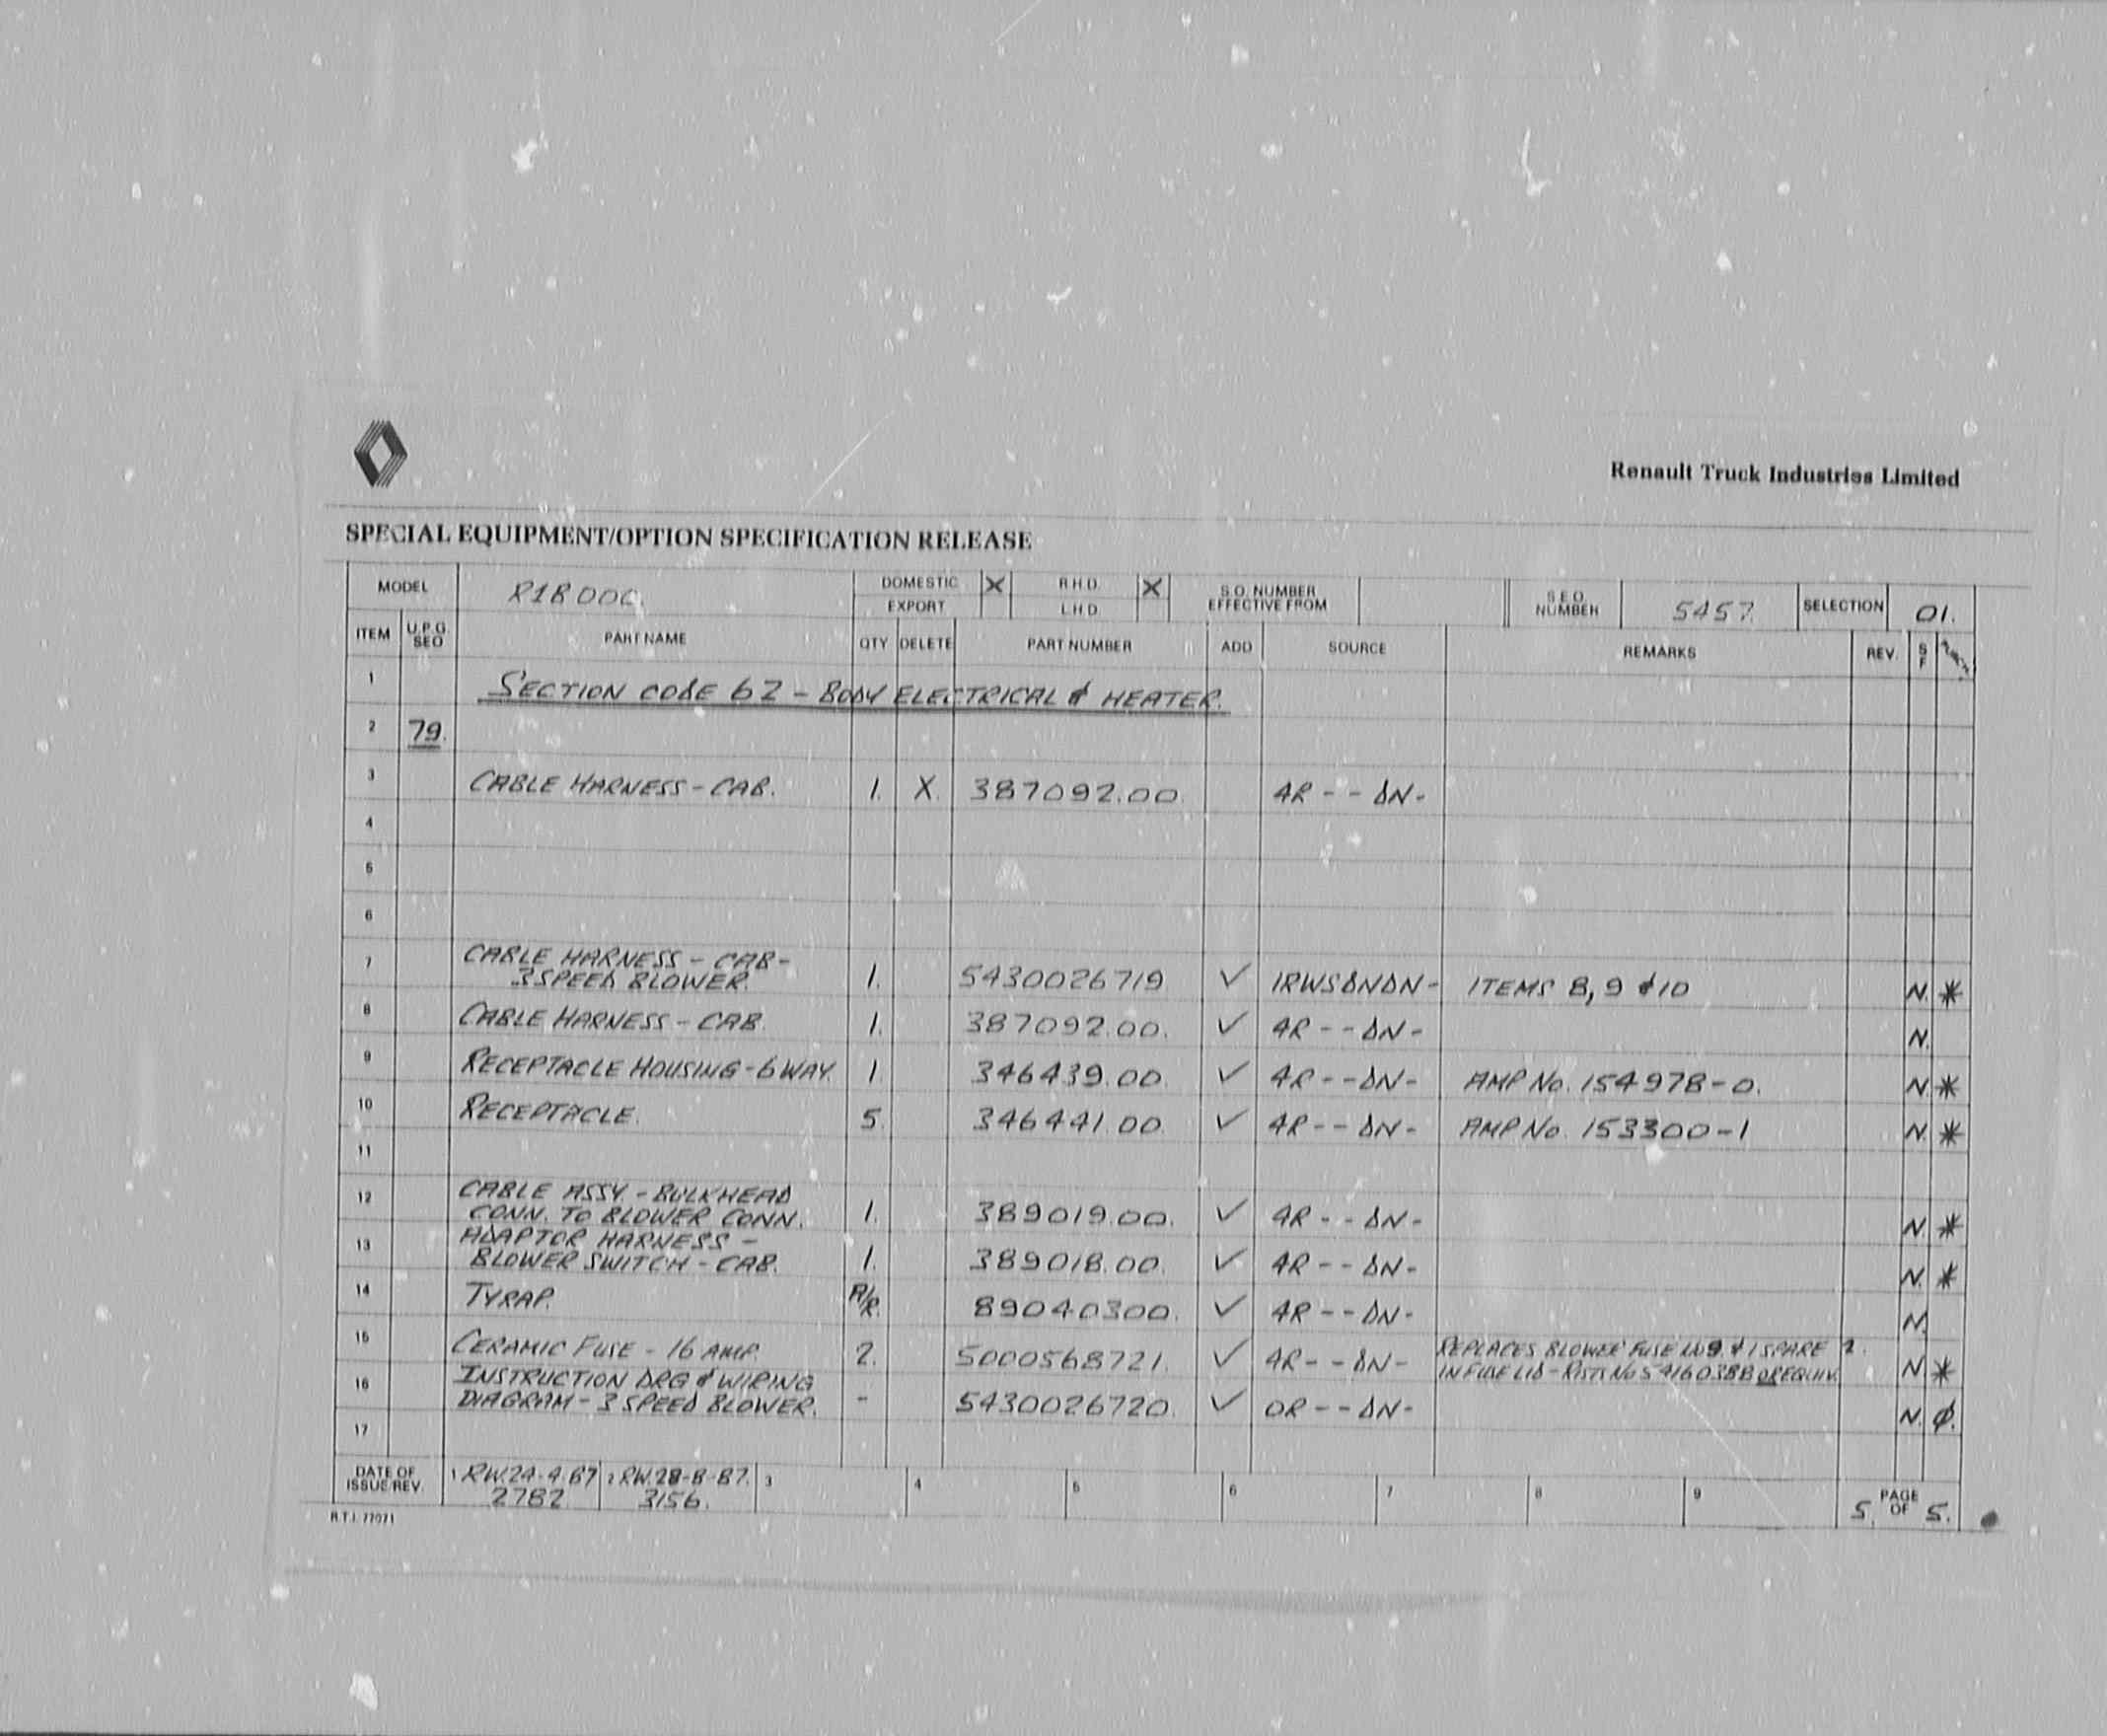 Renault Truck Industries Limited
SPECIAL EQUIPMENT/OPTION SPECIFICATION RELEASE
MODEL R1B00C. DOMESTIC X R.H.D. X S.O. NUMBER EFFECTIVE FROM S.E.O. NUMBER 5457. SELECTION 01.
EXPORT L.H.D.
ITEM U.P.G. SEQ PART NAME QTY DELETE PART NUMBER ADD SOURCE REMARKS REV. S F
1 SECTION CODE 62 - BODY ELECTRICAL & HEATER.
2 79.
3 CABLE HARNESS - CAB. 1. X. 387092.00. 4R - - ΔN -
4
5
6
7 CABLE HARNESS - CAB -
3 SPEED BLOWER. 1. 5430026719 ✓ 1RWSΔNΔN - ITEMS 8, 9 & 10 N. *
8 CABLE HARNESS - CAB. 1. 387092.00. ✓ 4R - - ΔN - N.
9 RECEPTACLE HOUSING - 6 WAY. 1. 346439.00. ✓ 4R - - ΔN - AMP No. 154978-0. N. *
10 RECEPTACLE. 5. 346441.00. ✓ 4R - - ΔN - AMP No. 153300-1 N. *
11
12 CABLE ASSY. - BULKHEAD
CONN. TO BLOWER CONN. 1. 389019.00. ✓ 4R - - ΔN - N. *
13 ADAPTOR HARNESS -
BLOWER SWITCH - CAB. 1. 389018.00. ✓ 4R - - ΔN - N. *
14 TYRAP. A/R. 89040300. ✓ 4R - - ΔN - N.
15 CERAMIC FUSE - 16 AMP. 2. 5000568721. ✓ 4R - - ΔN - REPLACES BLOWER FUSE & 1 SPARE 2.
IN FUSE LID - No OR EQUIV. N. *
16 INSTRUCTION DRG & WIRING
DIAGRAM - 3 SPEED BLOWER. - 5430026720. ✓ 0R - - ΔN - N. Ø.
17
DATE OF ISSUE/REV. 1 RW.24-4-87 2 RW.28-8-87. 3 4 5 6 7 8 9 PAGE 5. OF 5.
2782 3156.
R.T.I. 77071